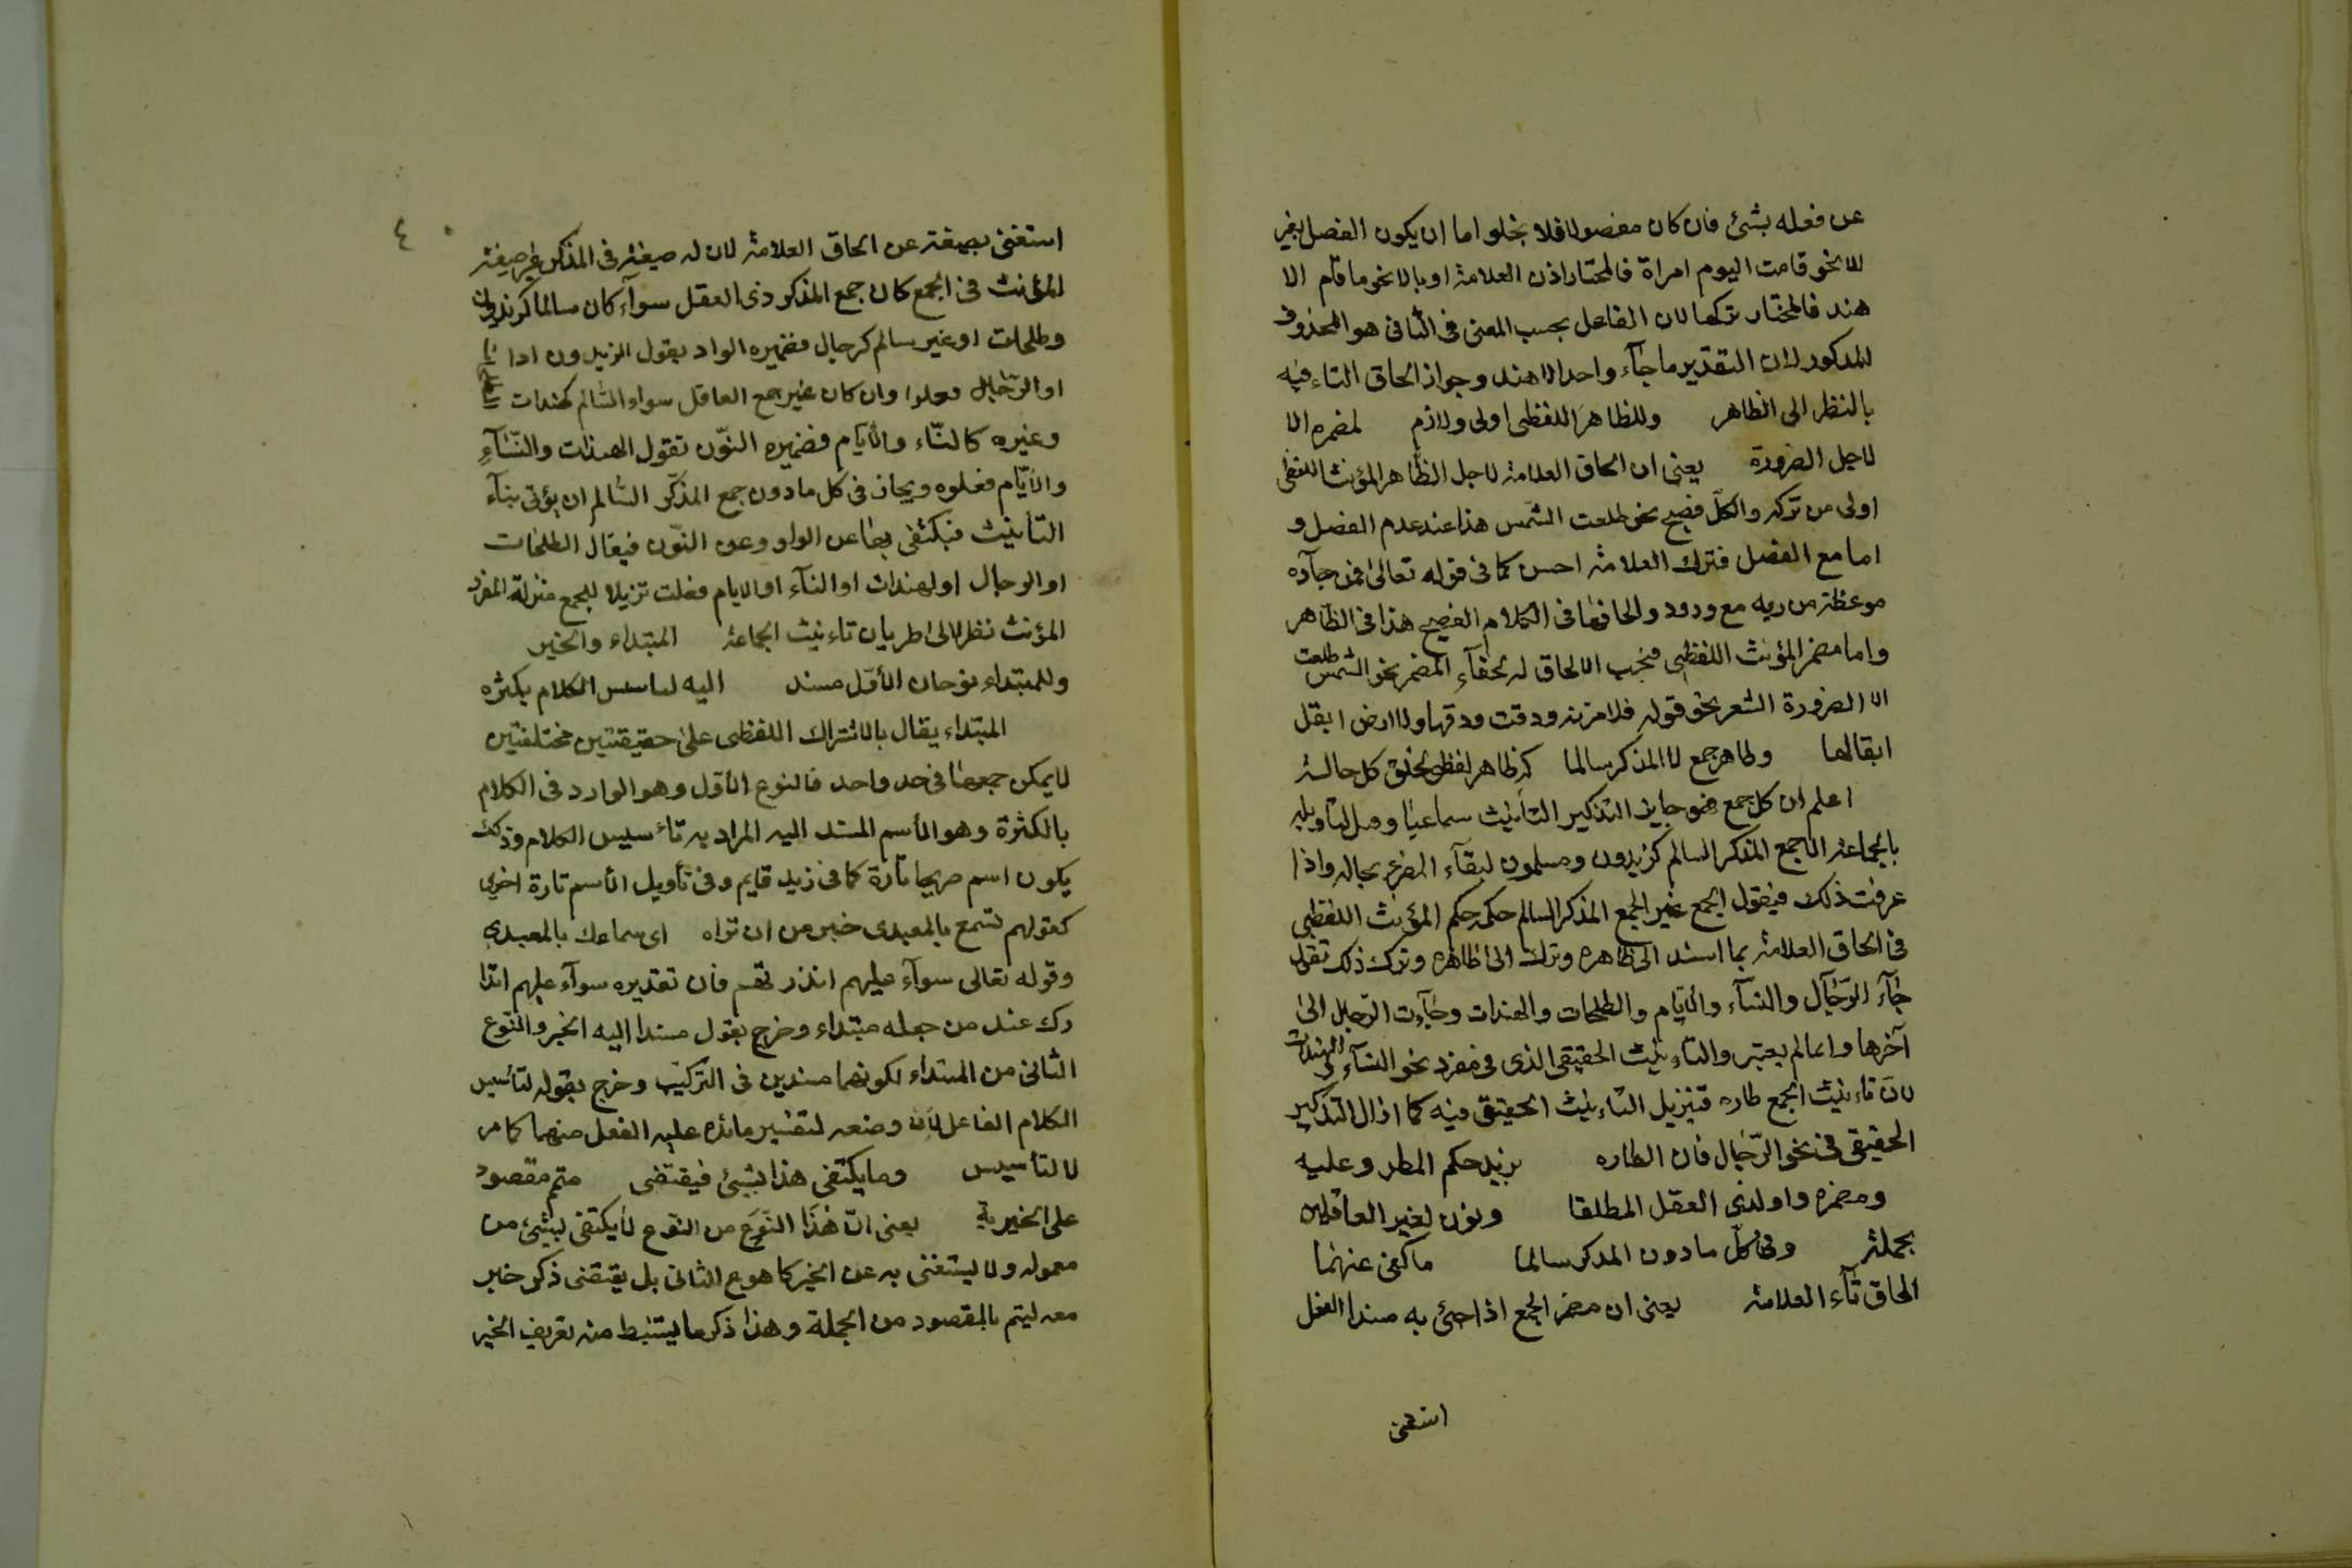 عن فعله بشئ فان كان مفصولا فلا يخلو اما ان يكون الفصل بغير
الا نحو قامت اليوم امراة فالمختار اذن العلامة او بالا نحو ما قام الا
هند فالمختار تركها لان الفاعل بحسب المعنى فى الثانى هو المحذوف
للمذكور لان التقدير ما جآء واحد الا هند وجواز الحاق التاء فيه
بالنظر الى الظاهر وللظاهر اللفظى اولى ولازم لمضمره الا
لاجل الضرورة يعنى ان الحاق العلامة لاجل الظاهر المؤنث اللفظى
اولى من تركه والكلّ فصيح نحو طلعت الشمس هذا عند عدم الفصل و
اما مع الفصل فترك العلامة احسن كما فى قوله تعالى فمن جآءه
موعظة من ربه مع ورود والحاقها فى الكلام الفصيح هذا فى الظاهر
واما مضمر المؤنث اللفظى فيجب الالحاق له لخفآء المضمر نحو الشمس طلعت
الا الضرورة الشعر نحو قوله فلا مزنة ودقت ودقها ولا ارض ابقل
ابقالها ولظاهر جمع لا المذكر سالما كظاهر لفظى كل حالة
اعلم ان كل جمع فهو جايز التذكير التأنيث سماعيا وصل لتاويله
بالجماعة الا جمع المذكر السالم كزيدون ومسلمون لبقآء المفرد بحاله واذا
عرفت ذلك فيقول الجمع غير الجمع المذكر السالم حكمه حكم المؤنث اللفظى
فى الحاق العلامة بما اسند الى ظاهره وترك الى ظاهره وترك ذلك تقول
جآء الرّجال والنسآء والايّام والطلحات والهندات وجآءت الرّجال الى
آخرها وانما لم يعتبر والتاءنيث الحقيقى الذى فى مفرد نحو النسآء والهندات
لانّ تاءنيث الجمع طاره فتنزيل التاءنيث الحقيقى فيه كما ازال التذكير
الحقيقى فى نحو الرّجال فان الطاره يزيد حكم المطر وعليه
ومضمره واو لذى العقل المطلقا ونون لغير العاقلين
بجملة وفى كلّ مادون المذكر سالما ما كفى عنهما
الحاق تآء العلامة يعنى ان مضمر الجمع اذا جئ به مسندا الفعل
استغنى
٤
استغنى بصيغة عن الحاق العلامة لان له صيغة فى المذكر غير صيغة
المؤنث فى الجمع كان جمع المذكر ذى العقل سوآء كان سالما كزيدون
وطلحات او غير سالم كرجال فضميره الواو يقول الزيدون
او الرّجال فعلوا وان كان غير جمع العاقل سواء السّالم كهندات
وغيره كالنّاء والايّام فضميره النّون تقول الهندات والنّسآء
والايّام فعلوه ويجاز فى كل مادون جمع المذكّر السّالم ان يؤتى بتآء
التأنيث فيكتفى بها عن الواو وعن النّون فيقال الطلحات
او الرجال او لهندات او النآء او الايام فعلت تنزيلا للجمع منزلة المفرد
المؤنث نظرا الى طريان تاءنيث الجماعة المبتداء والخبر
وللمبتداء نوعان الأوّل مسند اليه لتاسيس الكلام بكثره
المبتداء يقال بالاشتراك اللفظى على حقيقتين مختلفتين
لا يمكن جمعهما فى حد واحد فالنوع الأوّل وهو الوارد فى الكلام
بالكثرة وهو الأسم المسند اليه المراد به تأسيس الكلام وذلك
يكون اسم صريحا تارة كما فى زيد قايم وفى تأويل الأسم تارة اخرى
كقولهم تسمع بالمعيدى خير من ان تراه اى سماعك بالمعيدى
وقوله تعالى سوآء عليهم انذرتهم فان تقديره سوآء عليهم انذا
رك عند من جعله مبتداء وخرج بقول مسندا اليه الخبر والنّوع
الثانى من المبتداء لكونهما مسندين فى التركيب وخرج بقوله لتأسيس
الكلام الفاعل لانّ وضعه لتفسير عليه الفعل منهما كما مر
لا لتأسيس وما يكتفى هذا بشئ فيقتضى متم مقصود
على الخبرية يعنى انّ هذا النّوع من النّوع لا يكتفى بشئ من
معموله ولا يستغنى به عن الخبر كما هو ع الثانى بل يقتضى ذكر خبر
معه ليتم بالمقصود من الجملة وهذا ذكر ما يستنبط منه تعريف الخبر